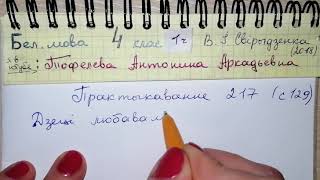 Бел. мова 4 клас 1ч В. І Свірыдзенка
(2018)
: Тюфелева Антонина Аркадьевна
Практыкаванне 217 (с 129)
Дзеці любавал